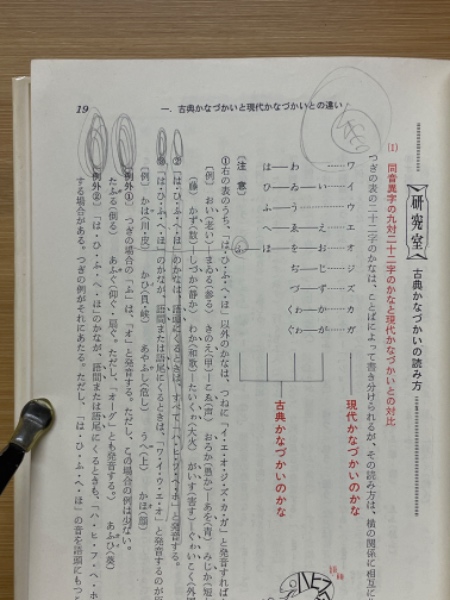 19
一．古典かなづかいと現代かなづかいとの違い
研究室
古典かなづかいの読み方
(1) 同音異字の九対二十二字のかなと現代かなづかいとの対比
つぎの表の二十二字のかなは、ことばによって書き分けられるが、その読み方は、横の関係に相互に
ワ
イ
ウ
エ
オ
ジ
ズ
カ
ガ
い
え
お
じ
ず
か
が
わ
ゐ
う
ゑ
を
ぢ
づ
くわ
ぐわ
は
ひ
ふ
へ
ほ
現代かなづかいのかな
古典かなづかいのかな
〔注意〕
①右の表のうち、「は・ひ・ふ・へ・ほ」以外のかなは、つねに「イ・エ・オ・ジ・ズ・カ・ガ」と発音すれば
〔例〕 おい(老い)―まゐる(参る) きのえ(甲)―こゑ(声) おろか(愚か)―あを(青) みじか(短
(藤) かず(数)―しづか(静か) わか(和歌)―たいくわ(大火) がいす(害す)―ぐわいこく(外国
②「は・ひ・ふ・へ・ほ」のかなは、語頭にくるときは、すべて「ハ・ヒ・フ・ヘ・ホ」と発音する。
「は・ひ・ふ・へ・ほ」のかなが、語間または語尾にくるときは、「ワ・イ・ウ・エ・オ」と発音するのが
〔例〕 かは(川・皮) かひ(貝・峡) あやふし(危し) うへ(上) かほ(顔)
例外① つぎの場合の「ふ」は、「オ」と発音する。ただし、この場合の例は少ない。
たふる(倒る) あふぐ(仰ぐ・扇ぐ。ただし、「オーグ」とも発音する。) あふひ(葵)
例外② 「は・ひ・ふ・へ・ほ」のかなが、語間または語尾にくるときも、「ハ・ヒ・フ・ヘ・ホ
する場合がある。つぎの例がそれにあたる。ただし、「は・ひ・ふ・へ・ほ」の音を語頭にもつ